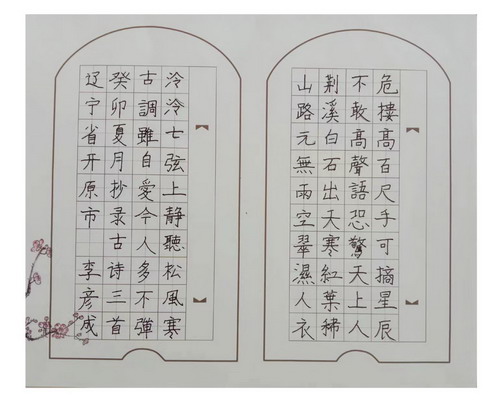 危樓高百尺手可摘星辰
不敢高聲語恐驚天上人
荆溪白石出天寒紅葉稀
山路元無雨空翠濕人衣
泠泠七弦上靜聽松風寒
古調雖自愛今人多不彈
癸卯夏月抄录古诗三首
辽宁省开原市 李彦成